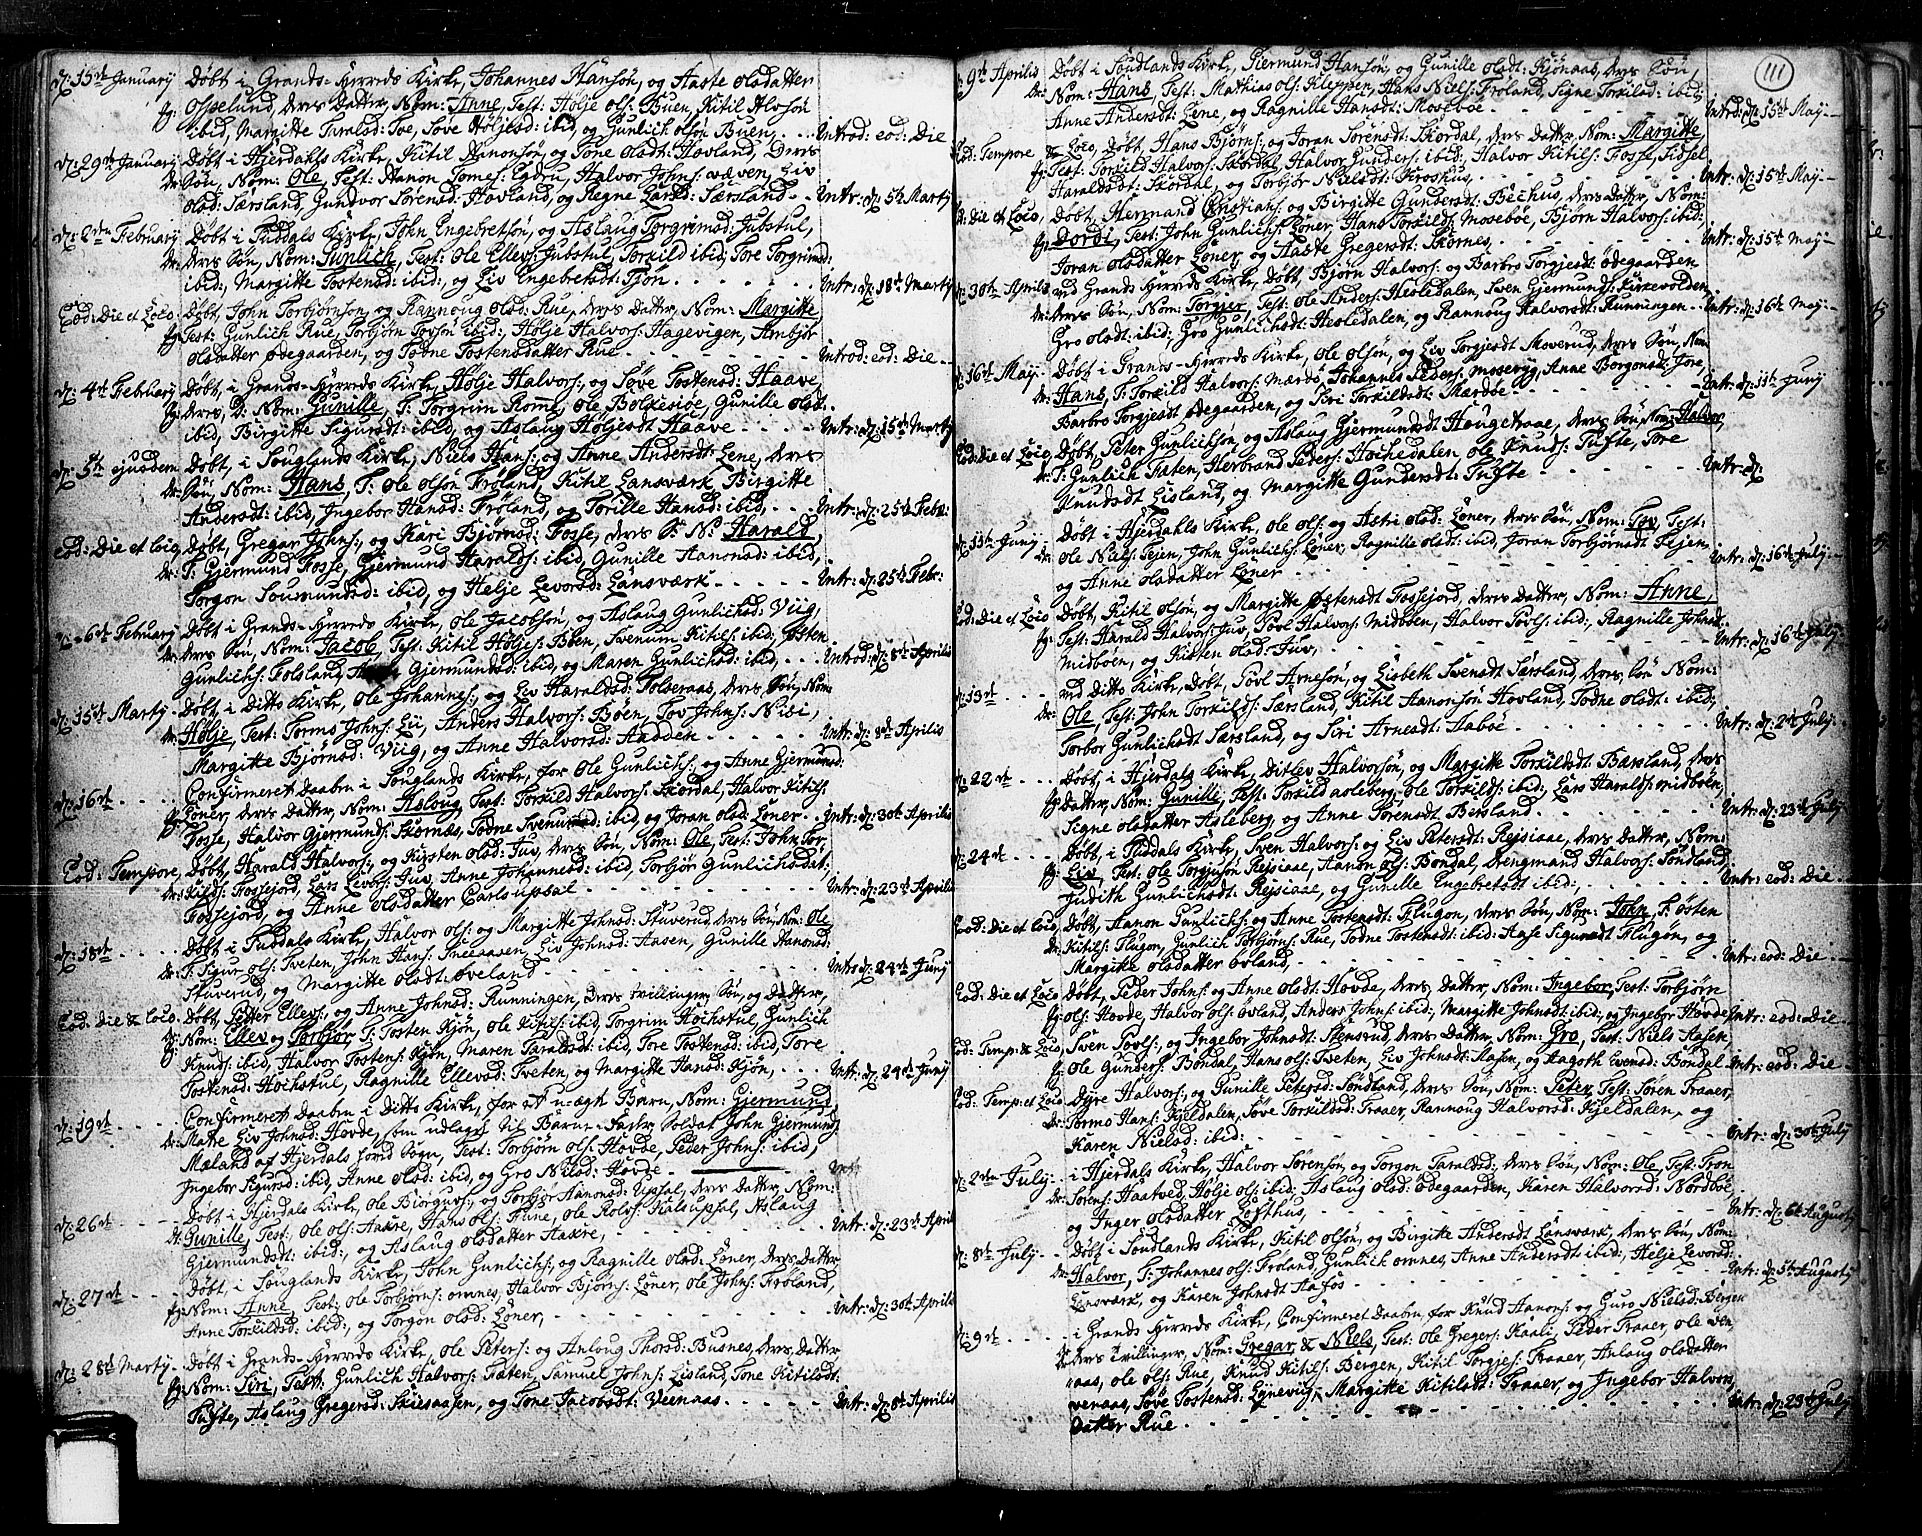 d: 15de January Døbt i Grands-Herreds Kirke, Johannes Hansøn, og Aaste Olsdatter
fg: Ospelund, deres Datter, Nom: Anne, Test: Hølje Ols: Buen, Kitil Alvsøn
ibid, Margitte Taralsd: Toe, Tove Høljesd: ibid, og Gunlich Olsøn Buen, Introd: eod: Die
d: 29de January Døbt i Hjerdahls Kirke, Kitil Aanonsøn, og Tone Olsdt: Hovland, deres
dr: Søn, Nom: Ole, Test: Aanon Tomes: Egdru, Halvor Johns: Wæven, Liv
Olsd: Særsland, Gundvor Sørensd: Hovland, og Regne Larsd: Særsland Intr: d: 5te Marty
d: 2den February Døbt i Tuddals Kirke, John Engebretsøn, og Aslaug Torgrimsd: Jubstul,
dr: deres Søn, Nom: Gunlich, Test: Ole Ellevs: Jubstul, Torkild ibid, Tore Torgrimsd:
ibid; Margitte Tostensd: ibid:, og Liv Engebretsdt: Fjøn Intr: d: 18de Marty
Eod: Die et Loco Døbt, John Torbjørnsøn, og Rannoug Olsd: Rue, deres Datter, Nom: Margitte
fg: Test: Gunlich Rue, Torbjørn Tovsøn ibid:, Hølje Halvors: Hagevigen, Ambjør
Olsdatter Ødegaarden, og Todne Tostensdatter Rue Introd: eod: Die
d: 4de February Døbt, i Grands-Herreds Kirke, Hølje Halvors:, og Tøve Tostensd: Haave,
fg: deres D: Nom: Gunille, T: Torgrim Romme, Ole Bolkesiøe, Gunille Olsdt:
ibid, Birgitte Sigursdt: ibid, og Aslaug Høljesdt Haave Intr: d: 15de Marty
d: 5te ejusdem Døbt, i Souglands Kirke, Niels Hans: og Anne Andersdt: Lene, deres
dr: Søn, Nom: Hans, T: Ole Olsøn Frøland, Kitil Lansværk Birgitte
Andersdt: ibid, Ingebor Hansd: Frøland, og Torille Hansd: ibid, Intr: d: 25de Febr:
eod: Die et loco Døbt, Gregar Johns:, og Kari Bjørnsd: Fosse, deres S: N: Harald,
dr: T: Gjermund Fosse, Gjermund Haralds: ibid, Gunille Aanonsd: ibid,
Torgon Soumundsd: ibid, og Helje Levorsd: Lansværk Intr: d: 25de Febr:
d: 6te February Døbt i Grands-Herreds Kirke, Ole Jacobsøn, og Aslaug Gunlichsd: Viig,
dr: deres Søn, Nom: Jacob, Test: Kitil Høljes: Bøen, Svenum Kitils: ibid; Østen
Gunlichs: Folsland, Gjermundsd: ibid, og Maren Gunlichsd: ibid, Introd: d: 8de Aprilis
d: 15de Marty Døbt i Ditto Kirke, Ole Johannes:, og Liv Haraldsd: Folseraas, deres Søn, Nom:
dr: Hølje, Test: Tormo Johns: Lii, Anders Halvors: Bøen, Tov Johns: Nibi,
Margitte Bjørnsd: Viig, og Anne Halvorsd: Hadden Intr: d: 8de Aprilis
d: 16de Confirmeret Daaben i Souglands Kirke, for Ole Gunlichs: og Anne Gjermundsd:
fg: Løner, deres Datter, Nom: Aslaug, Test: Torkild Halvors: Skordal, Halvor Kitils:
Fosse, Halvor Gjermunds: Skornes, Todne Svenumsd: ibid, og Joran Olsd: Løner Intr: d: 30te Aprilis
Eod: Tempore, Døbt, Harald Halvors:, og Kirsten Olsd: Juv, deres Søn, Nom: Ole, Test: John Tor-
dr: Kilds: Fossejord, Lars Levors: Juv, Anne Johannesd: ibid, Torbjør Gunlichsdat:
Fossejord, og Anne Olsdatter Carlsupsal Intr: d: 23de Aprilis
d: 18de Døbt i Tuddals Kirke, Halvor Ols: og Margitte Johnsd: Stuverud, deres Søn, Nom: Ole
dr: T: Sigur Ols: Tveten, John Hans: Sneeaasen, Liv Johnsd: Aasen, Gunille Aanonsd:
Stuverud, og Margitte Olsdt: Øveland Intro: d: 24de Juny
Eod: Die & Loco Døbt, Peter Ellevs:, og Anne Johnsd: Runningen, deres Tvillinger, Søn, og Datter,
Nom: Ellev og Torbjør, T: Tosten Kjøn, Ole Kitils: ibid, Torgrim Hochstul, Gunlich
Knuds: ibid, Halvor Tostens: Kjøn, Maren Taraldsdt: ibid, Tore Tostensd: ibid, Tore
Tostensd: Hochstul, Ragnille Ellevsd: Tveten, og Margitte Hansd: Kjøn, Intr: d: 24de Juny
d: 19de Confirmeret Daaben i Ditto Kirke, for et u-ægte Barn, Nom: Gjermund
dr: Matre Liv Johnsd: Hovde, som udlagde til Barne-Fader, Soldat John Gjermunds:
Mæland af Hjerdals hoved Sogn, Test: Torbjørn Ols: Hovde, Peder Johns: ibid,
Ingebor Sigursd: ibid, Anne Olsd: ibid, og Gro Nilsd: Hovde
d: 26de Døbt i Hjerdals Kirke, Ole Biørgufs:, og Torbjør Aanonsd: Upsal, deres Datter, Nom:
dt: Gunille, Test: Ole Ols: Aakre, Hans Ols: Fune, Ole Rolvs: Kalsupsal, Aslaug
Gjermundsdt: ibid:, og Aslaug Olsdatter Aakre, Intr: d: 23de April
d: 27de Døbt, i Souglands Kirke, John Gunlichs: og Ragnille Olsd: Løner, deres Datter
fg: Nom: Anne, Test: Ole Torbjørns: omnes, Halvor Bjørns: Løner, Ole Johns: Frøland,
Anne Torkildsd: ibid:, og Torgon Olsd: Løner, Intr: d: 30te Aprilis
d: 28de Marty Døbt i Grands-Herreds Kirke, Ole Peters: og Anloug Thorsd: Busnes, deres Datter
fg: Nom: Siri, Test: Gunlich Halvors: Fæten, Samuel Johns: Lisland, Tone Kitilsdt:
Tufte, Aslaug Gregersd: Skiesaasen, og Tone Jacobsdt: Veenaas Intr: d: 8de Aprilis
111
d: 9de Aprilis Døbt i Soudlands Kirke, Giermund Hansøn, og Gunille Olsdt: Kjønaas, deres Søn,
dr: Nom: Hans, Test: Mathias Ols: Kleppen, Hans Niels: Frøland, Signe Torkilsd: ibid;
Anne Andersdt: Lene, og Ragnille Hansdt: Mosebøe Introd: d: 15de May
Eod: Tempore & Loco, Døbt, Hans Bjørns: og Joran Torensdt: Skordal, deres Datter, Nom: Margitte
fg: Test: Torkild Halvors: Skordal, Halvor Gunders: ibid; Halvor Kitils: Fosse, Sidsel
Haraldsdt: Skordal, og Torbjør Nielsdt: Kroshus Intr: d: 15de May
Eod: Die et Loco, Døbt, Herrmand Christians: og Birgitte Gundersdt: Bechhus, deres Datter, Nom:
fg: Dordi, Test: John Gunlichs: Løner, Hans Torkilds: Mosebøe, Bjørn Halvors: ibid:
Joran Olsdatter Løner, og Aaste Gregersdt: Skornes, Intr: d: 15de May
d: 30te Aprilis ved Grands Herreds Kirke, Døbt, Bjørn Halvors: og Barbro Torgjesdt: Ødegaarden
dr: deres Søn, Nom: Torgier, Test: Ole Anders: Hesledalen, Sven Gjermunds: Kirkevolden,
Gro Olsdt: ibid; Gro Gunlichsdt: Hesledalen, og Rannoug Halvorsdt: Runningen Intr: d: 16de May
d: 16de May Døbt i Grands-Herreds Kirke, Ole Olsøn, og Liv Torgjesdt Moverud, deres Søn, Nom
dr: Hans, T: Torkild Halvors: Mærdø, Johannes Peders: Moserøg, Anne Borgonsd: Jore,
Barbro Torgjesdt Ødegaarden, og Siri Torkildsdt: Mærdøe Intr: d: 11te Juny
Eod: Die et Loco Døbt, Peter Gunlichsøn, og Aslaug Gjermundsdt Haugetraae, deres Søn, Nom: Halvor,
dr: T: Gunlich Fæten, Herbrand Peders: Hochedalen, Ole Knuds: Tufte, Tore
Knudsdt Lisland, og Margitte Gundersdt: Tufte Intr: d:
d: 11te Juny Døbt i Hjerdahls Kirke, Ole Ols: og Astri Olsd: Løner, deres Søn, Nom: Tov, Test:
dr: Ole Niels: Fejen, John Gunlichs: Løner, Ragnille Olsdt: ibid, Joran Torbjørnsdt Fejen,
og Anne Olsdatter Løner Intr: d: 16de July
Eod: Die et Loco Døbt, Kitil Olsøn, og Margitte Østensdt Fossejord, deres Datter, Nom: Anne,
fg: Test: Harald Halvors: Juv, Tovl Halvors: Midbøen, Halvor Tovls: ibid:, Ragnille Johnsdt
Midbøen, og Kisten Olsd: Juv, Intr: d: 16de July
d: 13de ved Ditto Kirke, Døbt, Tovl Arnesøn, og Lisbeth Svensdt: Særsland, deres Søn Nom:
dr: Ole, Test: John Torkilds: Særsland, Kitil Aanonsøn Hovland, Todne Olsdt: ibid;
Torbor Gunlichsdt Særsland, og Siri Arnesdt: Aabøe Intr: d: 2de July
d: 22de Døbt, i Hjerdals Kirke, Ditlev Halvorsøn, og Margitte Torkildsdt: Bærsland, deres
fg: Datter, Nom: Gunille, Test: Torkild Asleberg, Ole Torkilds: ibid; Lars Haralds: Midbøen,
Signe Olsdatter Asleberg, og Anne Sørensdt: Bærsland Intr: d: 23de July
d: 24de Døbt i Tuddals Kirke, Sven Halvors: og Liv Petersdt: Rejsiaae, deres Datter, Nom:
fg: Liv, Test: Ole Torgjusøn Rejsiaae, Aanon Ols: Bondal, Drengmand Halvors: Søndland,
Judith Gunlichsdt: Rejsiaae, og Gunille Engebretsdt ibid:, Intr: eod: Die
Eod: Die et Loco, Døbt, Aanon Gunlichs: og Anne Tostensdt: Flugon, deres Søn, Nom: John, T: Østen
dr: Kitils: Flugon, Gunlich Torbjørns: Rue, Todne Tostensdt: ibid: Aase Sigursdt Flugøn, og
Margitte Olsdatter Øvland, Intr: eod: Die
Eod: Die et Loco Døbt, Peder Johns: og Anne Olsdt: Hovde, deres Datter, Nom: Ingebor, Test: Torbjørn
fg: Ols: Hovde, Halvor Ols: Øvland, Anders Johns: ibid; Margitte Johnsdt: ibid; og Ingebor Hovde Intr: eod: Die
Eod: Temp: & Loco, Sven Tovls:, og Ingebor Johnsdt: Stensrud, deres Datter, Nom: Gro, Test: Niels Aasen,
fg: Ole Gunders: Bondal, Hans Ols: Tveten, Liv Johnsdt: Aasen, og Aagoth Evensd: Bondal Intr: eod: Die
Eod: Temp: et Loco Dyre Halvors:, og Gunille Petersd: Søndland, deres Søn, Nom: Peter, Test: Søren Traaer,
dr: Tormo Hans: Kjeldalen, Tøve Torkildsd: Traaer, Rannoug Halvorsd: Kjeldalen, og
Karen Nielsd: ibid: Intr: d: 30te July
d: 2den July i Hjerdals Kirke, Halvor Sørensøn, og Torgon Taraldsd:, deres Søn, Nom: Ole, Test: Tron
dr: Sørens: Haatved, Hølje Ols: ibid: Aslaug Olsd: Ødegaarden, Karen Halvorsd: Nordbøe
og Inger Olsdatter Lofthus, Intr: d: 6te Augusty
d: 8de July Døbt i Soudlands Kirke, Kitil Olsøn, og Birgitte Andersdt Lansværk, deres Søn, Nom:
dr: Halvor, T: Johannes Ols: Froland, Gunlich omnes, Anne Andersdt ibid; Helje Levorsd:
Lansværk, og Karen Johnsdt Aasos Intr: d: 5te Augusty
d: 9de i Grands Herreds Kirke, Confirmeret Daaben, for Knud Aanons: og Guro Nielsd: Bergen
deres Tvillinger, Nom: Gregar & Niels, Test: Ole Gregers: Kaali, Peder Traaer, Ole Ven-
naas, Ole Ols: Rue, Knud Kitils: Bergen, Kitil Torgjes: Traaer, Anlaug Olsdatter
Venaas, Tøve Tostensd: Lynevig, Margitte Kitilsdt: Traaer, og Ingebor Halvors
Datter Rue Intr: d: 23de July